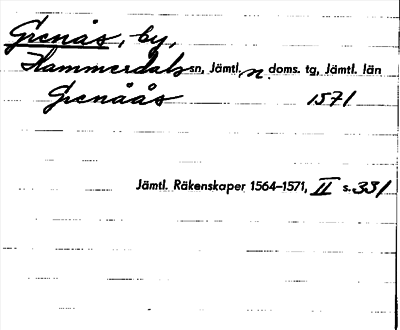 Grenås, by,
Hammerdals sn, Jämtl. n. doms. tg, Jämtl. län
Grenåås 1571
Jämtl. Räkenskaper 1564–1571, II s. 331